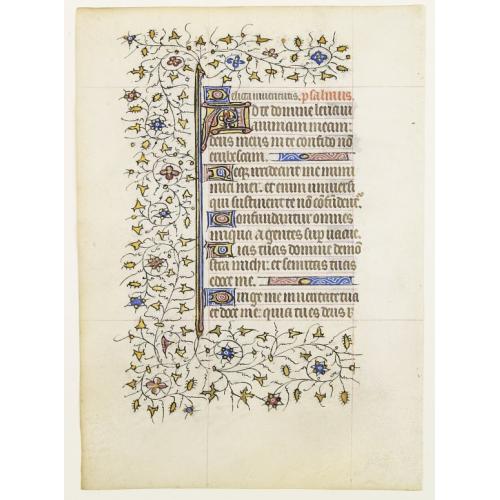 Delicta iuventutis. psalmus.
Ad te domine levavi
animam meam:
deus meus in te confido nō
erubescam.
Neque irrideant me inimi
mici mei: et enim universi
qui sustinent te nō confident̄.
Confundantur omnes
iniqua agentes sup vacue.
Vias tuas domine demō
stra michi: et semitas tuas
edoce me.
Dirige me in veritate tua
et doce me: quia tu es deus